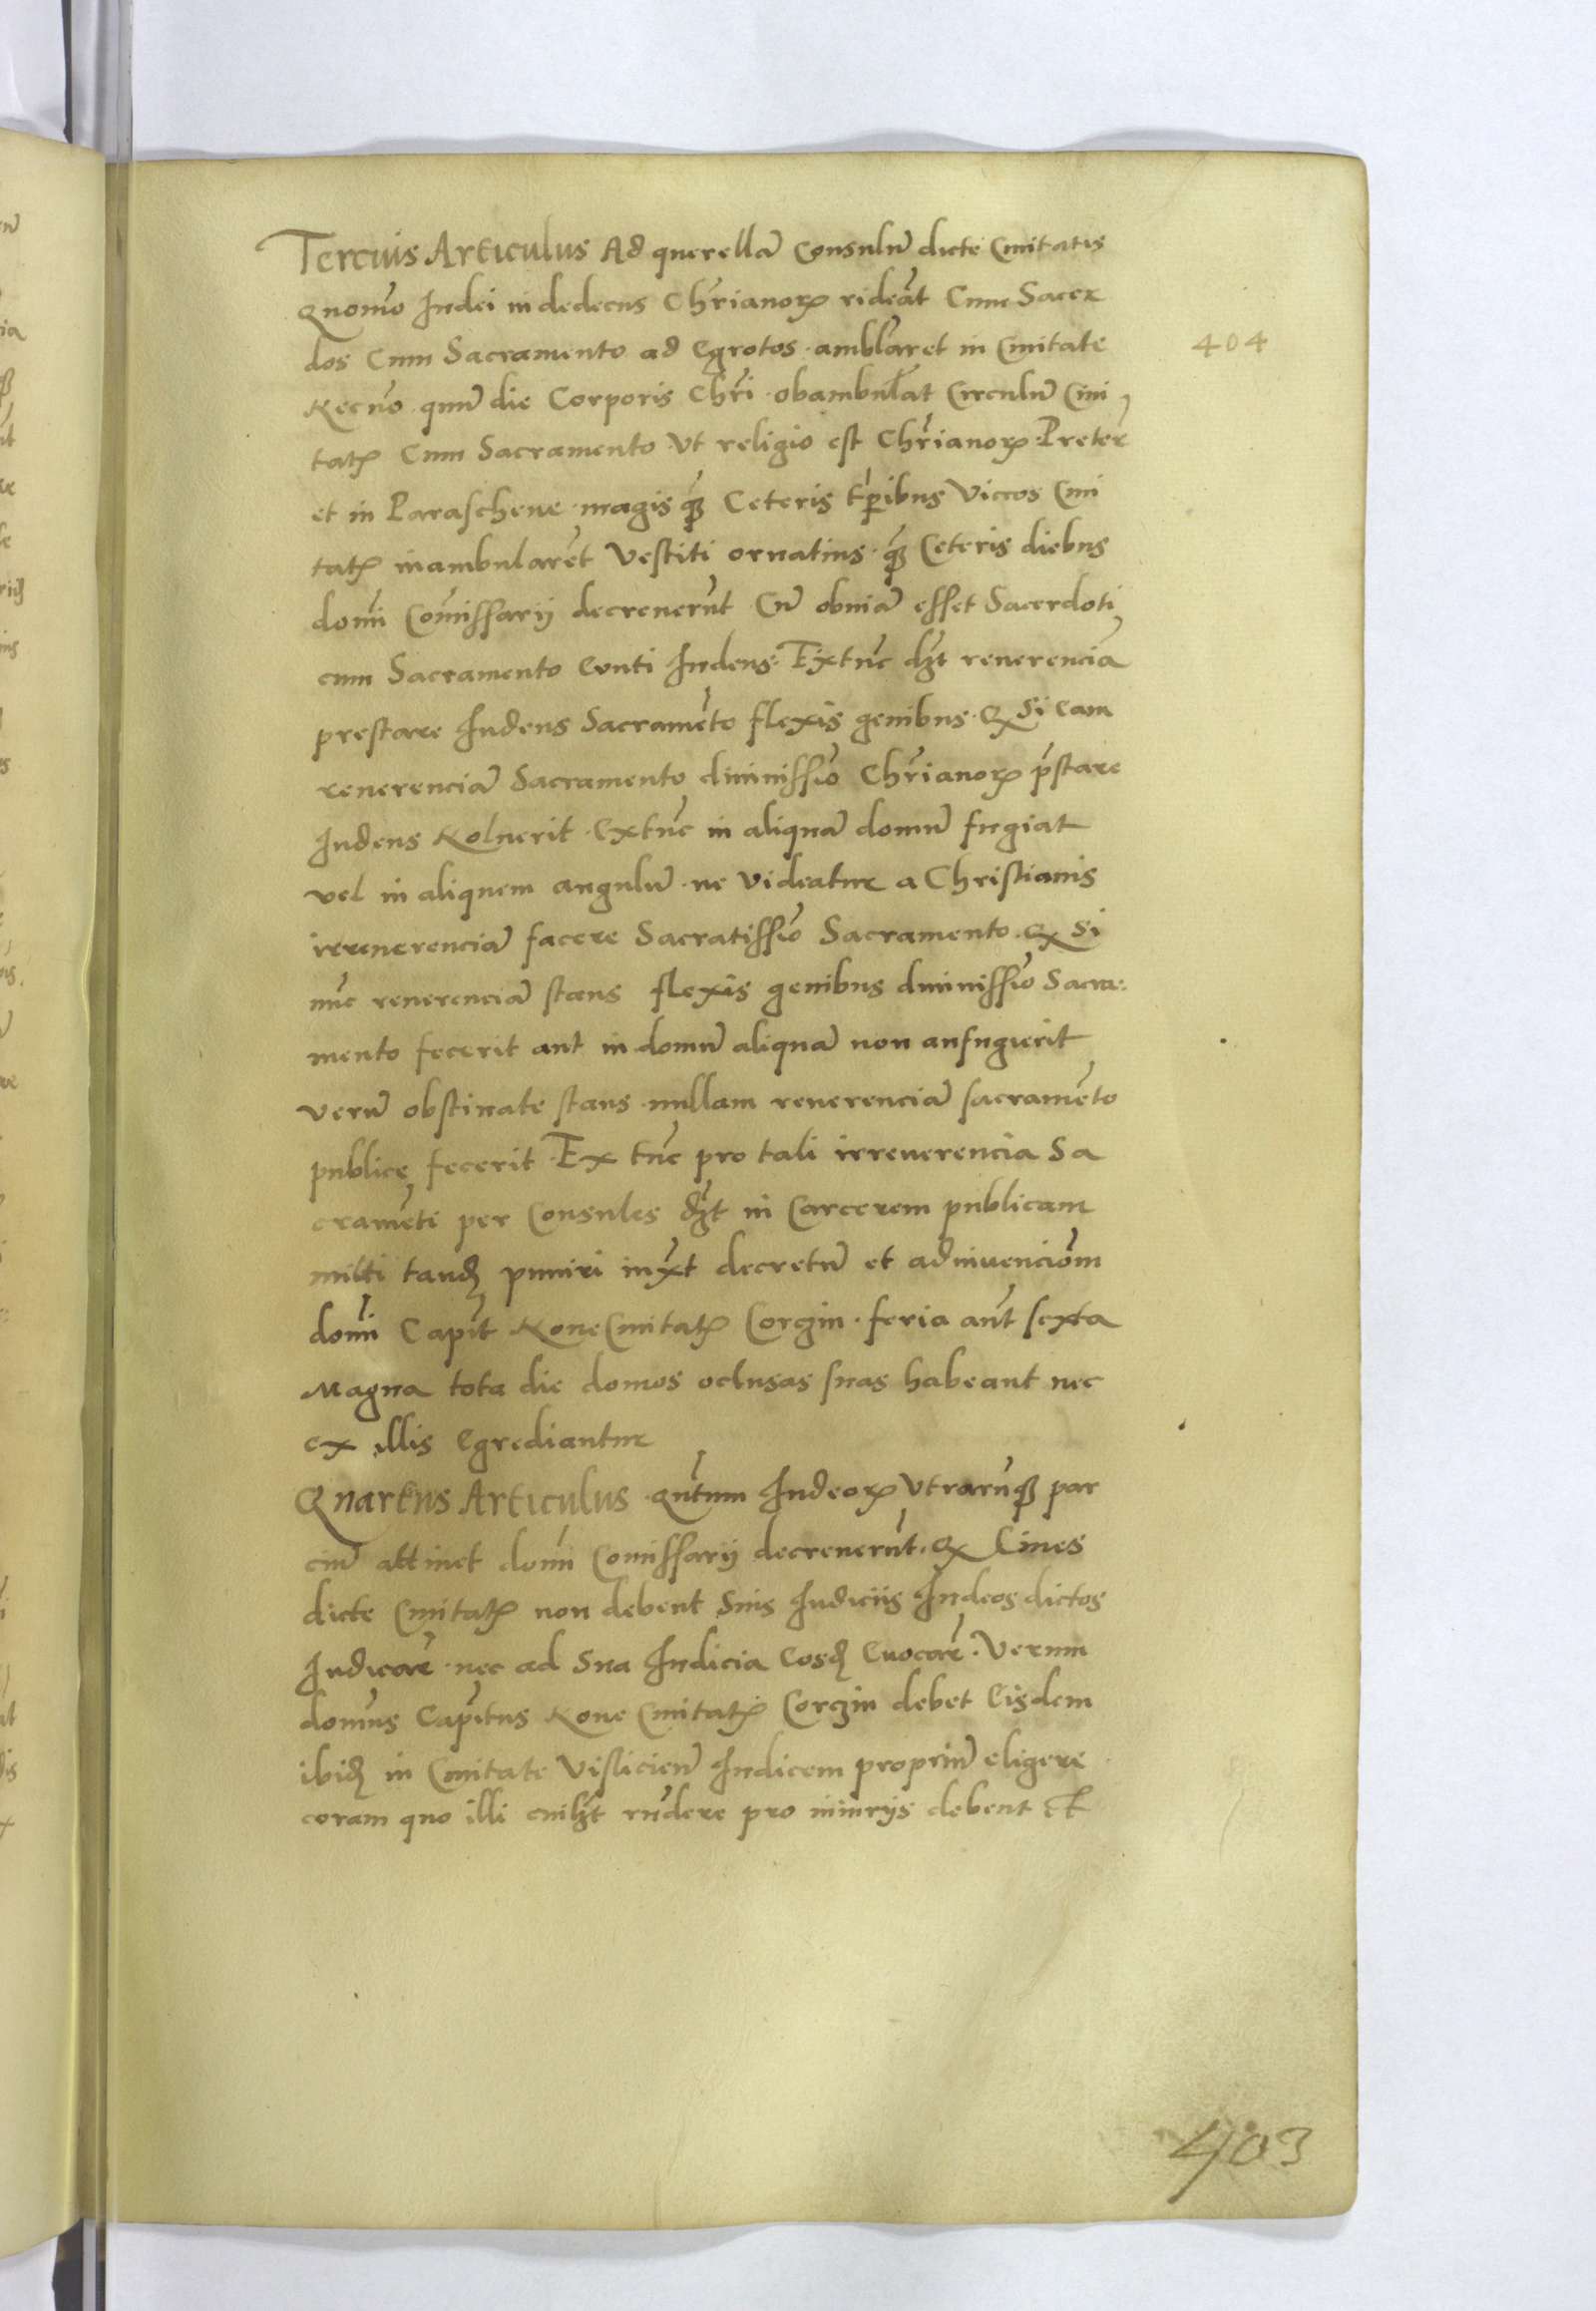 Tercius Articulus Ad querellā Consulū dicte Ciuitatis
Quomō Iudei in dedecus Chr̄ianorꝝ rideāt Cum Sacer
dos Cum Sacramento ad Egrotos ambl̄aret in Ciuitate
404
Necnō quū die Corporis Chr̄i obambul̄at Circulū Ciui
tatꝭ Cum Sacramento Vt religio est Chr̄ianorꝝ Preter̄
et in Parascheue magis qꝫ̄ Ceteris tp̄ribus Vicos Ciui
tatꝭ inambularēt Vestiti ornatius qꝫ̄ Ceteris diebus
domī Com̄issarij decreuerūt Cū obuiā esset Sacerdoti
cum Sacramento Eunti Iudeus Extūc dꝫ̄t reuerenciā
prestare Iudeus Sacramēto flexis genibus Qꝫ Si Eam
reuerenciā Sacramento diuinissīo Chr̄ianorꝝ p̄stare
Iudeus Noluerit Extūc in aliquā domū fugiat
vel in aliquem angulū ne Videatur a Christianis
irreuerenciā facere Sacratissīo Sacramento Qꝫ Si
nūc reuerenciā stans flexis genibus diuinissīo Sacra:
mento fecerit aut in domū aliquā non aufugierit
verū obstinate stans nullam reuerenciā sacramēto
publice fecerit Ex tūc pro tali irreuerencia Sa
cramēti per Consules dꝫ̄t in Carcerem publicam
mitti tandꝫ puniri iuxt̄ decretū et adinuenciōm
domī Capit̄ NoneCiuitatꝭ Corczin feria aūt sexta
Magna tota die domos oclusas suas habeant nec
ex illis Egrediantur
Quartus Articulus Qūtum Iudeorꝝ Vtrarūqꝫ par
ciū attinet domī Comissarij decreuerūt Qꝫ Ciues
dicte Ciuitatꝭ non debent Suis Iudiciis Iudeos dictos
Iudicar̄e nec ad Sua Iudicia Eosdꝫ Euocar̄e Verum
domīus Capit̄us Noue Ciuitatꝭ Corczin debet Eisdem
ibidꝫ in Ciuitate Visliciēn Iudicem propriū eligere
coram quo illi cuilꝫ̄t rūdere pro iniurijs debent Et
403